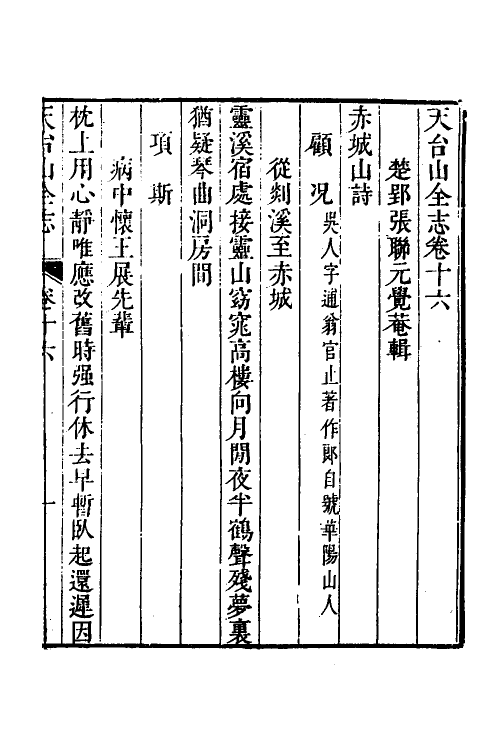 天台山全志卷十六
楚郢張聯元覺菴輯
赤城山詩
顧况 吳人字逋翁官止著作郎自號華陽山人
從剡溪至赤城
靈溪宿處接靈山窈窕高樓向月閒夜半鶴聲殘夢裏
猶疑琴曲洞房間
項斯
病中懷王展先輩
枕上用心靜唯應改舊時强行休去早暫臥起還遲因
天台山全志 卷十六 一